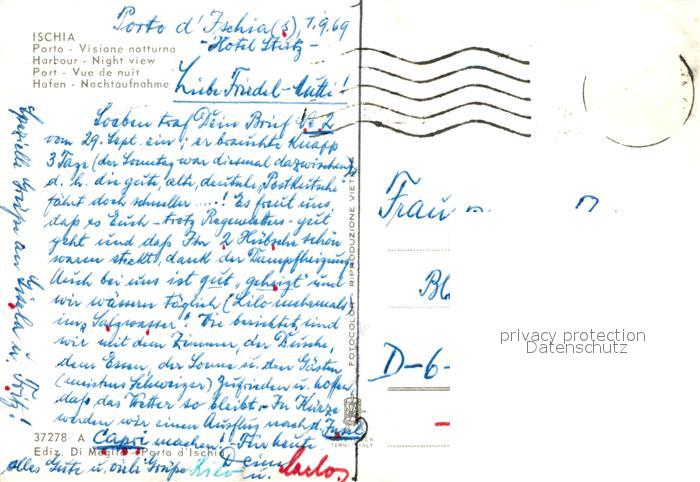 Porto d'Ischia(s), 1.9.69
- Hotel Stritz -
ISCHIA
Porto - Visione notturna
Harbour - Night view
Port - Vue de nuit
Hafen - Nachtaufnahme
Liebe Friedel-Mutti!
Soeben traf Dein Brief No 2
vom 29. Sept. ein; er brauchte knapp
3 Tage (der Sonntag war diesmal dazwischen)
d. h. die gute, alte, deutsche „Postkutsche"
fährt doch schneller ....! Es freut uns,
daß es Euch - trotz Regenwetters - gut
geht und daß Ihr 2 Hübsche schön
waren dank der Dampfheizung
Auch bei uns ist gut „geheizt" und
wir wässern täglich (Lilo mehrmals)
ins Salzwasser! Wie berichtet, sind
wir mit dem Zimmer, der Dusche,
dem Essen, der Sonne u. den Gästen
(meistens Schweizer) zufrieden u. hoffen,
daß das Wetter so bleibt. - In Kürze
werden wir einen Ausflug nach d. Insel
Capri machen! - Für heute
alles Gute u. viele Grüße Deine
u. Carlos
Spezielle Grüße an Gisela u. Fritz!
37278 A
Ediz. Di Meglio - Porto d'Ischia
FOTOCOLOR - RIPRODUZIONE VIETATA
Frau
Bl
D-6-
privacy protection
Datenschutz